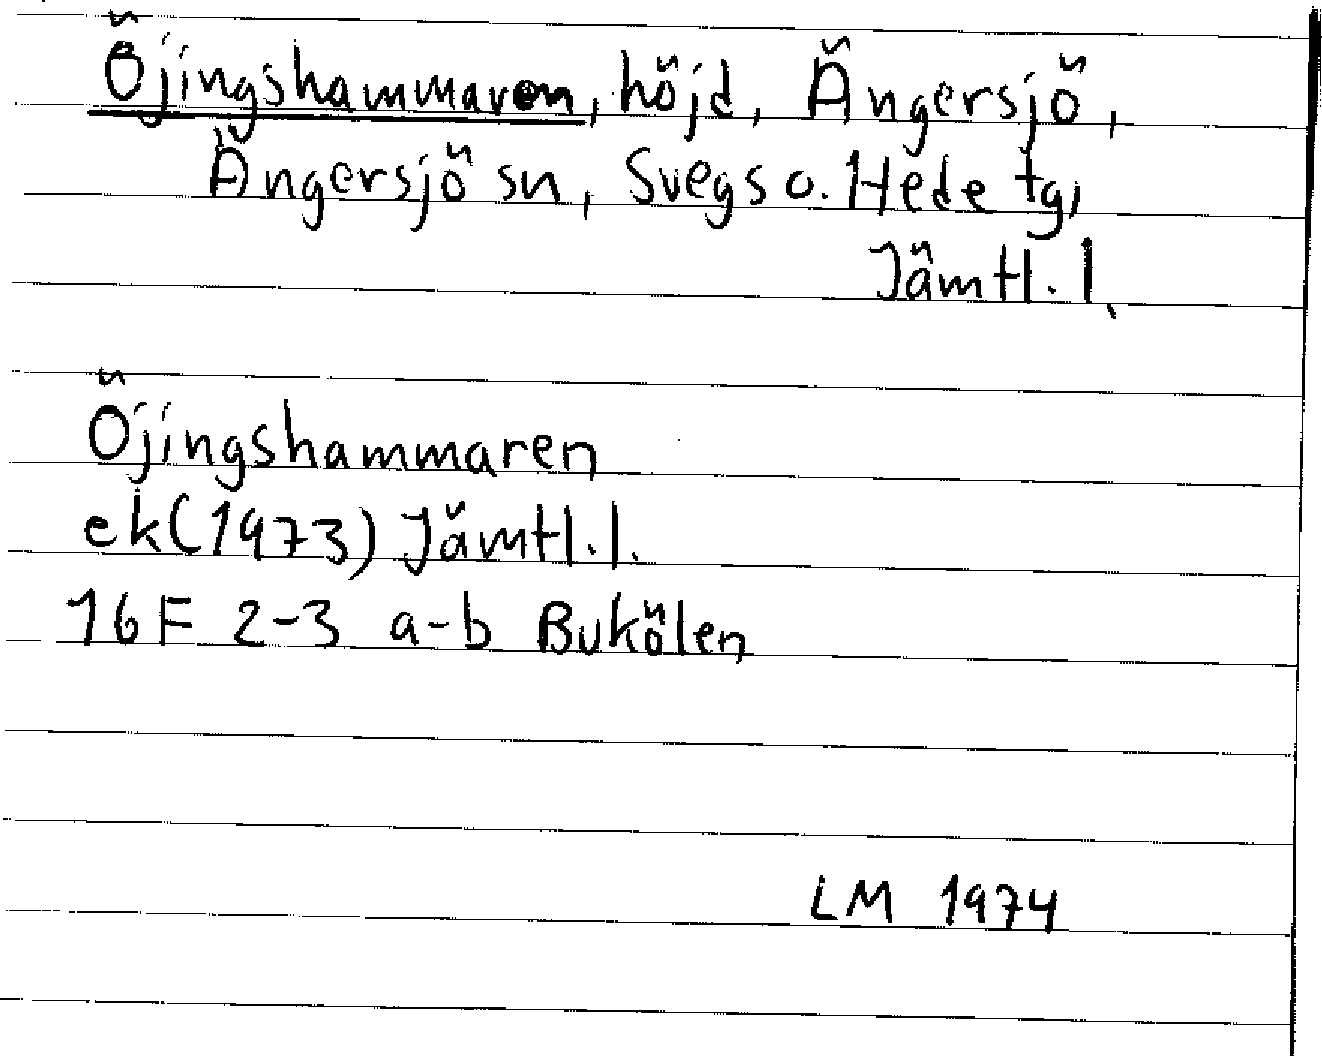 Öjingshammaren, höjd, Ängersjö,
Ängersjö sn, Svegs o. Hede tg,
Jämtl. l.
Öjingshammaren
ek (1973) Jämtl. l.
16 F 2-3 a-b Bukölen
LM 1974